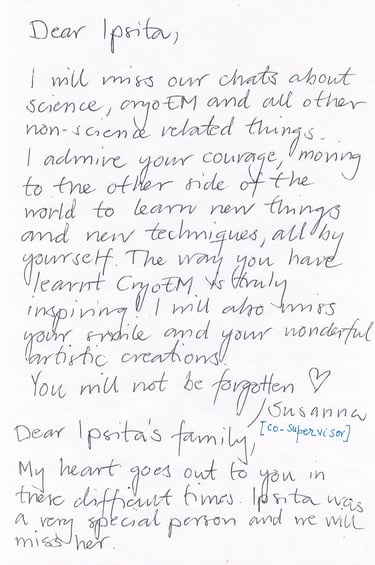 Dear Ipsita,
I will miss our chats about
science, cryoEM and all other
non-science related things.
I admire your courage, moving
to the other side of the
world to learn new things
and new techniques, all by
yourself. The way you have
learnt CryoEM is truly
inspiring! I will also miss
your smile and your wonderful
artistic creations!
You will not be forgotten ♡
/Susanna
[co-supervisor]
Dear Ipsita's family,
My heart goes out to you in
these difficult times. Ipsita was
a very special person and we will
miss her.